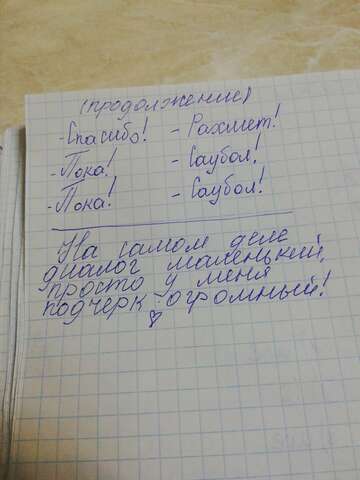 (продолжение)
- Спасибо! - Рахмет!
- Пока! - Саубол!
- Пока! - Саубол!
На самом деле
диалог маленький,
просто у меня
подчерк огромный!